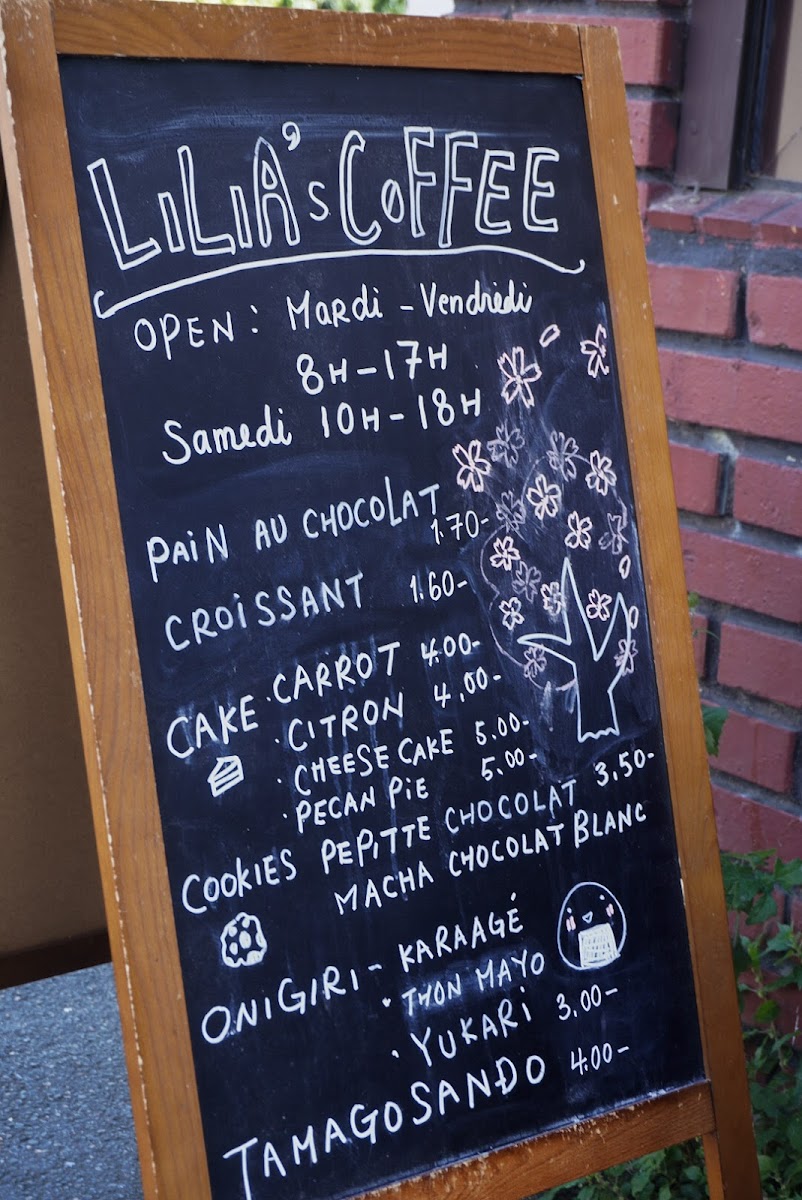 LiLiA's CoFFEE
OPEN : Mardi - Vendredi
8H - 17H
Samedi 10H - 18H
PAiN AU CHOCOLAT
1.70-
CROiSSANT 1.60-
CAKE · CARROT 4.00-
· CITRON 4.00-
· CHEESE CAKE 5.00-
· PECAN PiE 5.00-
COOKIES PEPITTE CHOCOLAT 3.50-
MACHA CHOCOLAT BLANC
ONIGIRI - KARAAGÉ
· THON MAYO
· YUKARi 3.00-
TAMAGOSANDO 4.00-